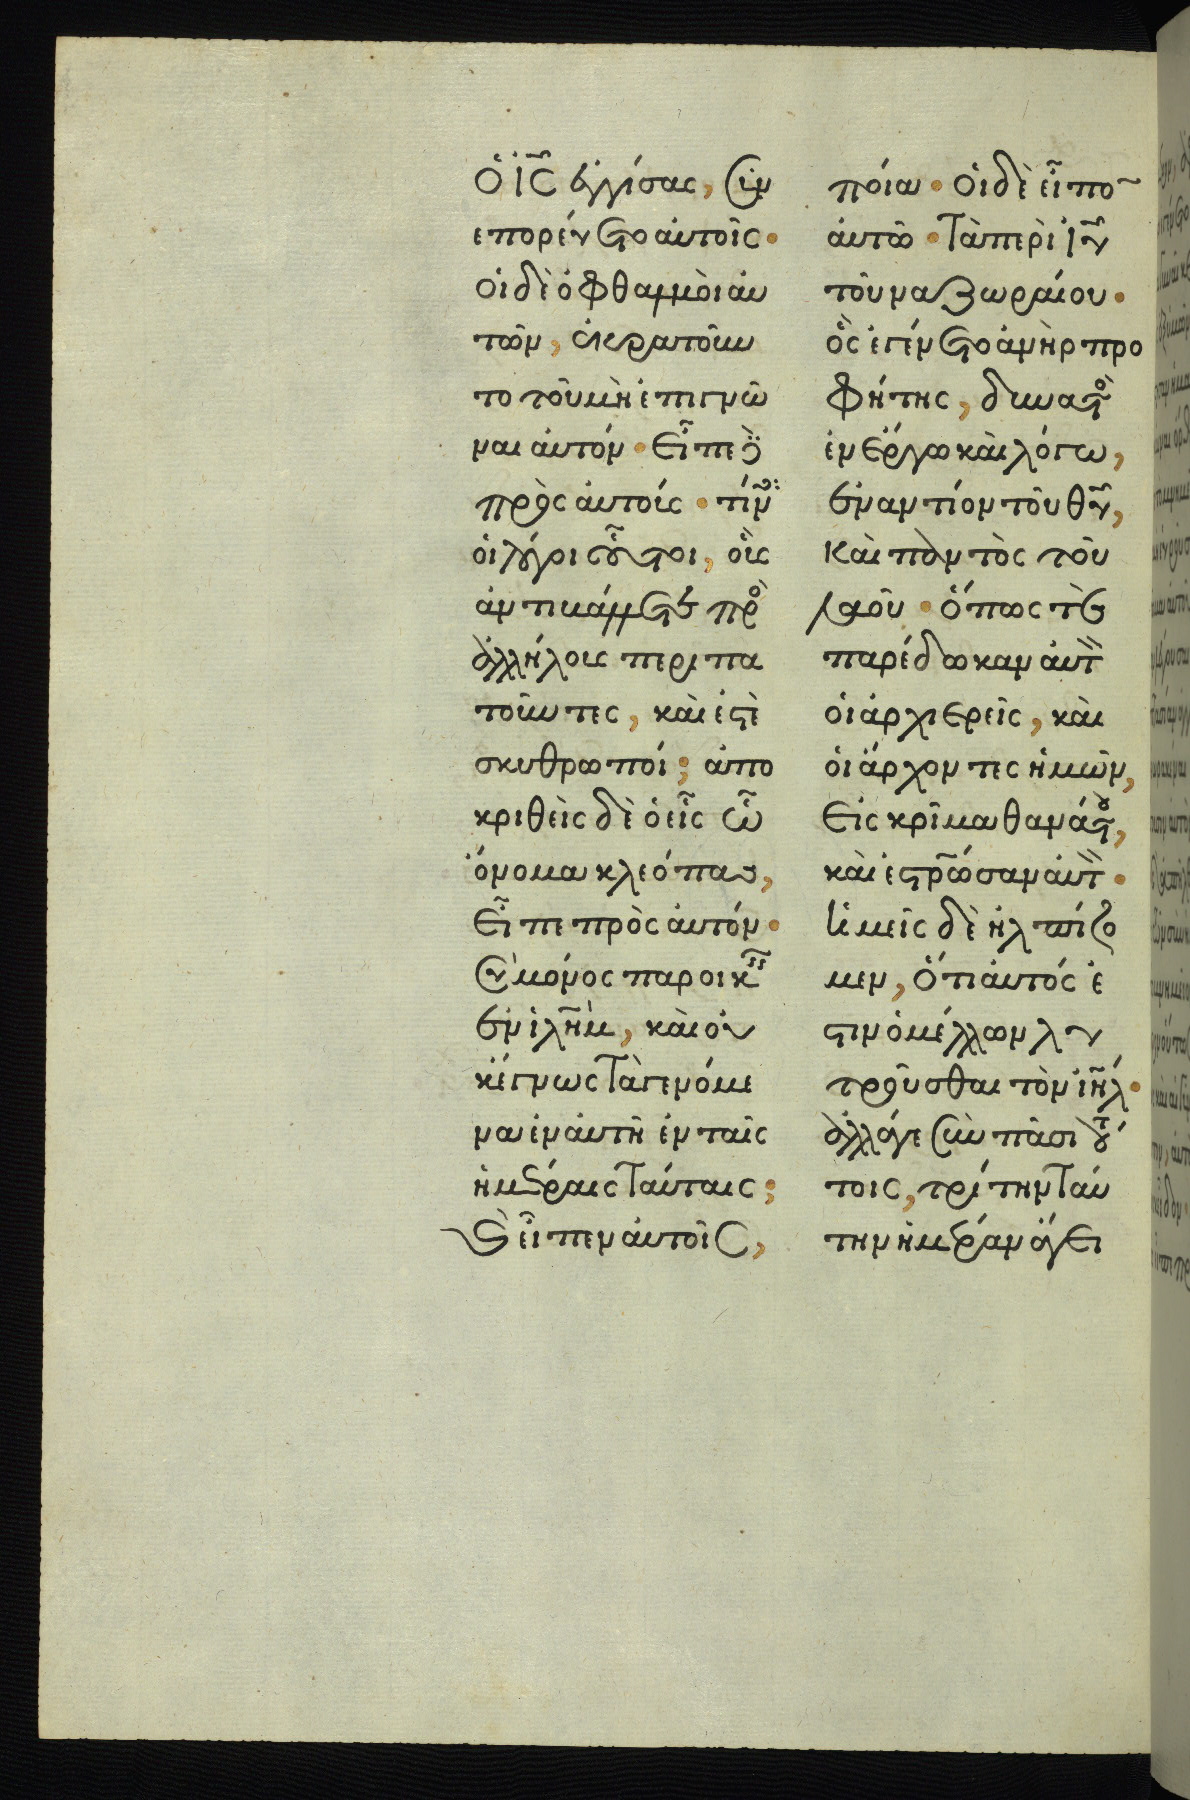 ὁ ἰς ἐγγίσας, συν
επορεύετο αὐτοῖς·
οἱ δὲ ὀφθαλμοὶ αὐ
τῶν, ἐκρατοῦν
το τοῦ μὴ ἐπιγνῶ
ναι αὐτόν· εἶπε δὲ
πρὸς αὐτούς· τίν
οἱ λόγοι οὗτοι, οὓς
ἀντιβάλλετε πρὸς
ἀλλήλους περιπα
τοῦντες, καὶ ἐστὲ
σκυθρωποί; ἀπο
κριθεὶς δὲ ὁ εἷς ᾧ
ὄνομα κλεόπας,
εἶπε πρὸς αὐτόν·
σὺ μόνος παροικεῖς
ἐν ἱλημ, καὶ οὐ
κ ἔγνως τὰ γενόμε
να ἐν αὐτῆ ἐν ταῖς
ἡμέραις ταύταις;
καὶ εἶπεν αὐτοῖς,
ποία· οἱ δὲ εἶπον
αὐτῶ· τὰ περὶ ἰυ
τοῦ ναζωραίου·
ὃς ἐγένετο ἀνὴρ προ
φήτης, δυνατὸς
ἐν ἔργω καὶ λόγω,
ἐναντίον τοῦ θυ,
καὶ παντὸς τοῦ
λαοῦ· ὅπως τὲ
παρέδωκαν αὐτὸν
οἱ ἀρχιερεῖς, καὶ
οἱ ἄρχοντες ἡμῶν,
εἰς κρῖμα θανάτου,
καὶ ἐστρωσαν αὐτὸν·
ἡμεῖς δὲ ἠλπίζο
μεν, ὅτι αὐτός ἐ
στιν ὁ μέλλων λυ
τροῦσθαι τὸν ἰηλ·
ἀλλάγε σὺν πᾶσι τού
τοις, τρίτην ταύ
την ἡμέραν ἄγει